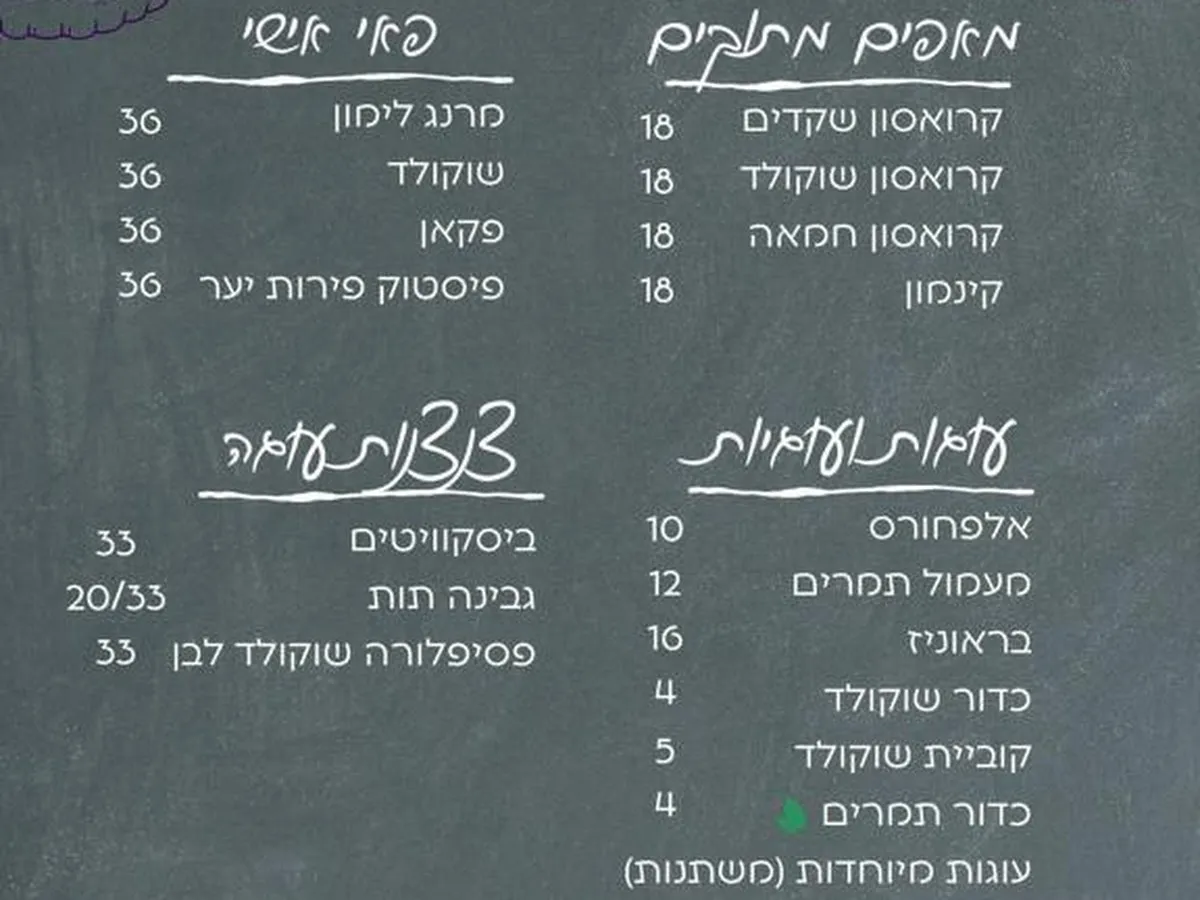 מאפים מתוקים
קרואסון שקדים 18
קרואסון שוקולד 18
קרואסון חמאה 18
קינמון 18
פאי אישי
מרנג לימון 36
שוקולד 36
פקאן 36
פיסטוק פירות יער 36
עוגות ועוגיות
אלפחורס 10
מעמול תמרים 12
בראוניז 16
כדור שוקולד 4
קוביית שוקולד 5
כדור תמרים 4
עוגות מיוחדות (משתנות)
צנצנות עוגה
ביסקוויטים 33
גבינה תות 20/33
פסיפלורה שוקולד לבן 33